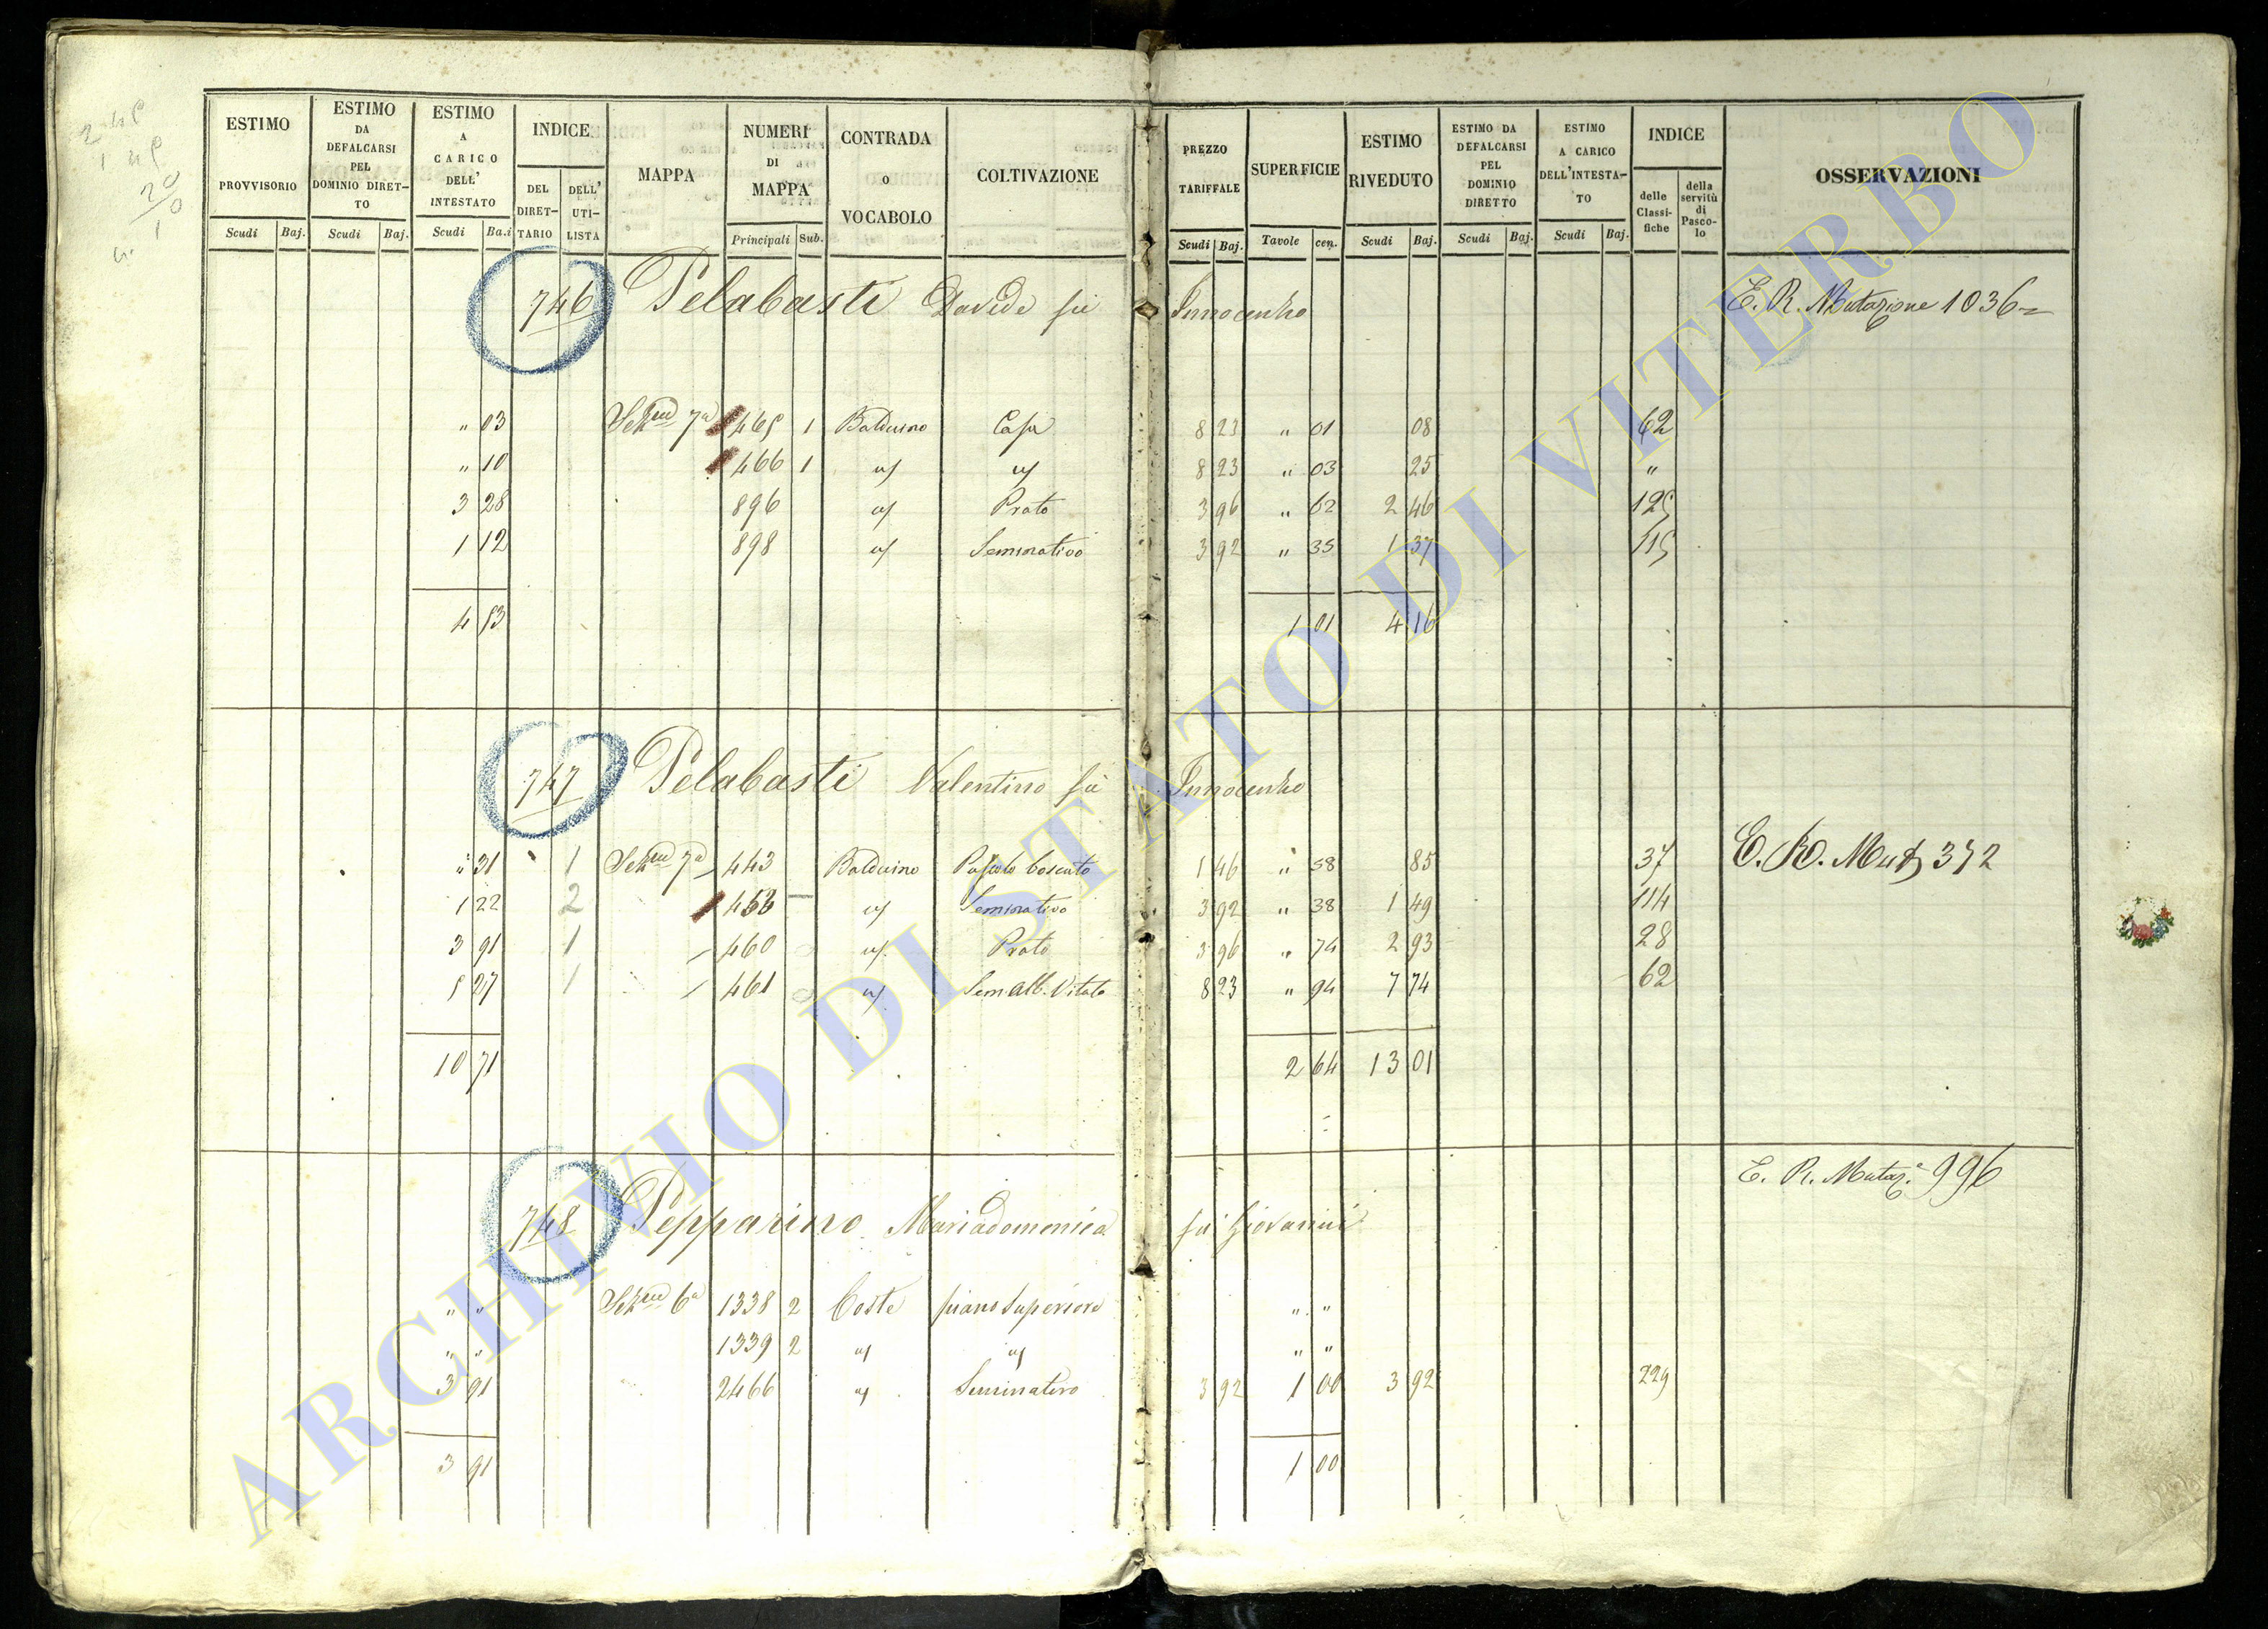 ESTIMO PROVVISORIO Scudi Baj.
ESTIMO DA DEFALCARSI PEL DOMINIO DIRET-TO Scudi Baj.
ESTIMO A CARICO DELL' INTESTATO Scudi Ba.i
INDICE DEL DIRET-TARIO DELL' UTI-LISTA
MAPPA
NUMERI DI MAPPA Principali Sub.
CONTRADA O VOCABOLO
COLTIVAZIONE
PREZZO TARIFFALE Scudi Baj.
SUPERFICIE Tavole cen.
ESTIMO RIVEDUTO Scudi Baj.
ESTIMO DA DEFALCARSI PEL DOMINIO DIRETTO Scudi Baj.
ESTIMO A CARICO DELL'INTESTA-TO Scudi Baj.
INDICE delle Classi-fiche della servitù di Pasco-lo
OSSERVAZIONI
746 Pelabasti Davide fu Innocenzo E. R. Mutazione 1036=
" 03 Sezne 7a 465 1 Balduino Casa 8 23 " 01 08 62
" 10 466 1 " " 8 23 " 03 25 "
3 28 896 " Prato 3 96 " 62 2 46 125
1 12 898 " Seminativo 3 92 " 35 1 37 115
4 53 1 01 4 16
747 Pelabasti Valentino fu Innocenzo
" 31 1 Sezne 7a 443 Balduino Pascolo boscato 1 46 " 58 85 37 E. R. Mutz 372
1 22 2 453 " Seminativo 3 92 " 38 1 49 114
3 91 1 460 " Prato 3 96 " 74 2 93 28
5 27 1 461 " Sem alb. Vitato 8 23 " 94 7 74 62
10 71 2 64 13 01
E. R. Mutaz.e 996
748 Pepparino Mariadomenica fu Giovanni
" " Sezne 6a 1338 2 Coste piano Superiore " "
" " 1339 2 " " " "
3 91 2466 " Seminativo 3 92 1 00 3 92 229
3 91 1 00
ARCHIVIO DI STATO DI VITERBO